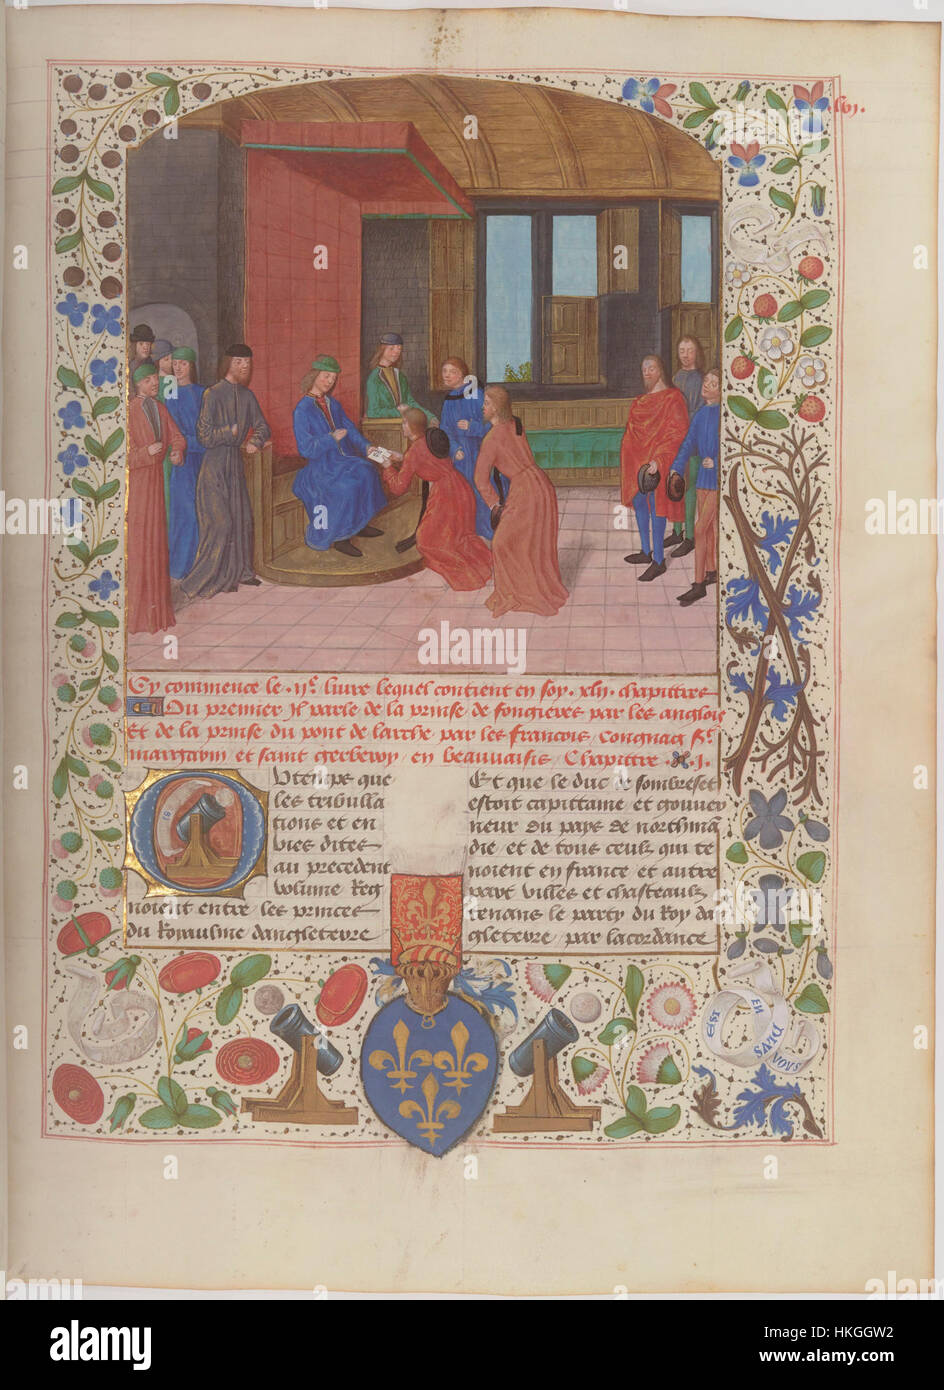 .lvj.
Cy commence le .ije. liure lequel contient en soy .xlij. chapittres
Du premier Il parle de la prinse de fougieres par les anglois
Et de la prinse du pont de larche par les francois Congnac St.
margarin et saint gerberoy en beauuaisis Chapittre .I.
Ov temps que
les tribulla
tions et en
vies dites
au precedent
volume Reg
noient entre les princes
du Roiaulme dangleterre
Et que le duc de sombreset
estoit capittaine et gouuer
neur du pays de northma
die et de tous ceulx qui te
noient en france et autre
part villes et chasteaulx
tenans le party du Roy da
gleterre / par lacordance
PLVS
EN
VOVS
alamy
Image ID: HKGGW2
www.alamy.com